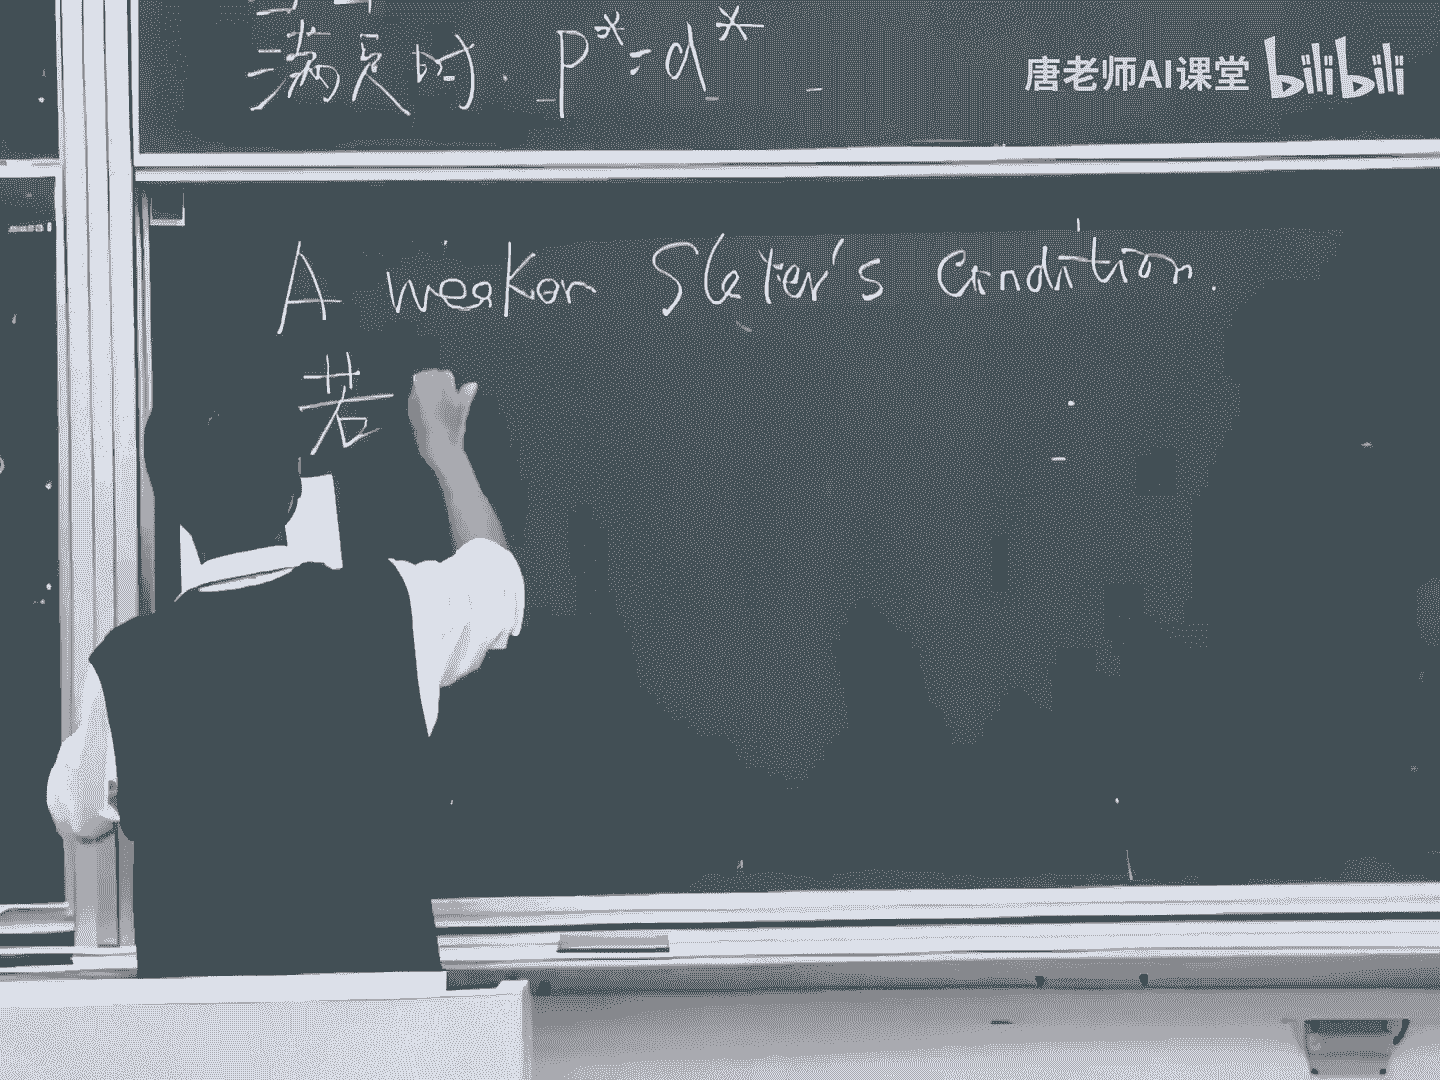 满足时. P*=d*
唐老师AI课堂 bilibili
A weaker Slater's Condition.
若